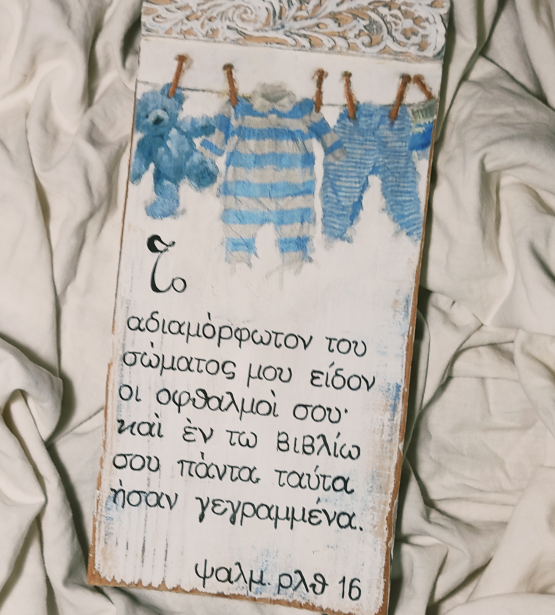 Το
αδιαμὸρφωτον του
σώματος μου είδον
οι οφθαλμοὶ σου·
καὶ ἐν τω βιβλίω
σου πὰντα ταύτα
ἠσαν γεγραμμένα.
ψαλμ ρλθ 16